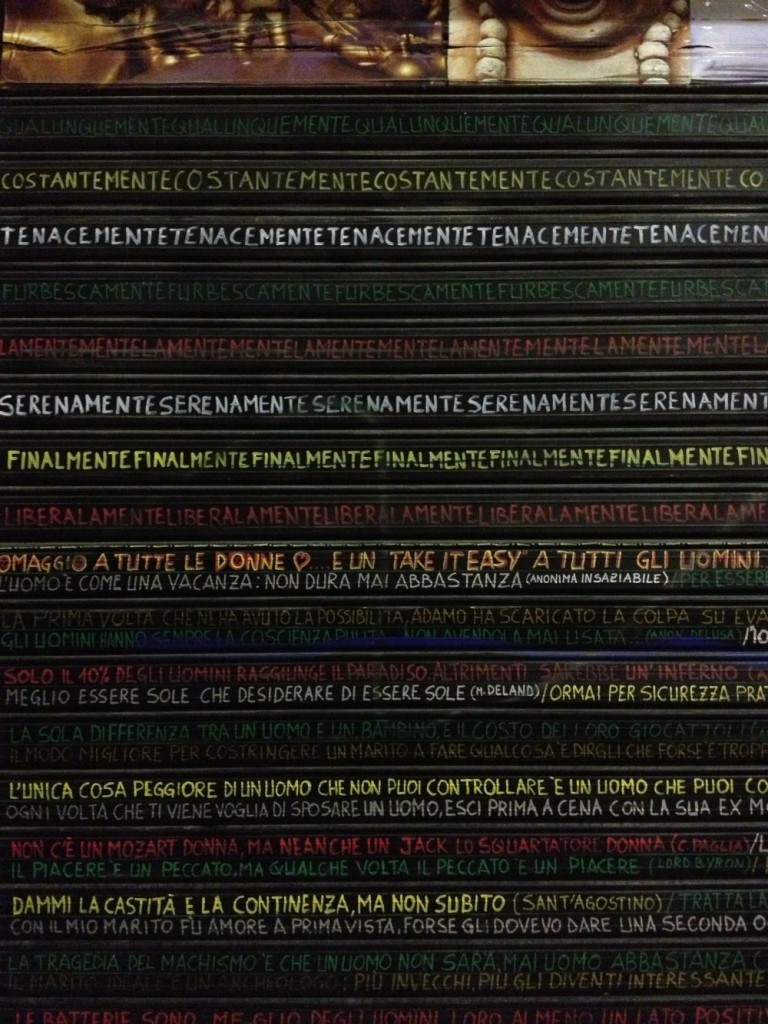 QUALUNQUEMENTEQUALUNQUEMENTEQUALUNQUEMENTEQUALUNQUEMENTEQUAL
COSTANTEMENTECOSTANTEMENTECOSTANTEMENTECOSTANTEMENTE CO
TENACEMENTETENACEMENTETENACEMENTETENACEMENTETENACEMEN
FURBESCAMENTEFURBESCAMENTEFURBESCAMENTEFURBESCAMENTEFURBESCA
LAMENTEMENTELAMENTEMENTELAMENTEMENTELAMENTEMENTELAMENTEMENTEL
SERENAMENTESERENAMENTESERENAMENTESERENAMENTESERENAMENT
FINALMENTEFINALMENTEFINALMENTEFINALMENTEFINALMENTEFINALMENTEFIN
LIBERALAMENTELIBERALAMENTELIBERALAMENTELIBERALAMENTELIBERALAME
OMAGGIO A TUTTE LE DONNE ♡....E UN "TAKE IT EASY" A TUTTI GLI UOMINI
L'UOMO È COME UNA VACANZA: NON DURA MAI ABBASTANZA (ANONIMA INSAZIABILE)/PER ESSERE
LA PRIMA VOLTA CHE NE HA AVUTO LA POSSIBILITÀ, ADAMO HA SCARICATO LA COLPA SU EVA
GLI UOMINI HANNO SEMPRE LA COSCIENZA PULITA... NON AVENDOLA MAI USATA...(ANON. DELUSA)
SOLO IL 10% DEGLI UOMINI RAGGIUNGE IL PARADISO. ALTRIMENTI SAREBBE UN' INFERNO
MEGLIO ESSERE SOLE CHE DESIDERARE DI ESSERE SOLE (M. DELAND)/ORMAI PER SICUREZZA PRAT
LA SOLA DIFFERENZA TRA UN UOMO E UN BAMBINO, È IL COSTO DEI LORO GIOCATTOLI
IL MODO MIGLIORE PER COSTRINGERE UN MARITO A FARE QUALCOSA È DIRGLI CHE FORSE È TROPP
L'UNICA COSA PEGGIORE DI UN UOMO CHE NON PUOI CONTROLLARE È UN UOMO CHE PUOI CO
OGNI VOLTA CHE TI VIENE VOGLIA DI SPOSARE UN UOMO, ESCI PRIMA A CENA CON LA SUA EX MO
NON C'È UN MOZART DONNA, MA NEANCHE UN JACK LO SQUARTATORE DONNA (C. PAGLIA)/L
IL PIACERE È UN PECCATO, MA QUALCHE VOLTA IL PECCATO È UN PIACERE (LORD BYRON)/
DAMMI LA CASTITÀ E LA CONTINENZA, MA NON SUBITO (SANT'AGOSTINO)/TRATTA LA
CON IL MIO MARITO FU AMORE A PRIMA VISTA, FORSE GLI DOVEVO DARE UNA SECONDA O
LA TRAGEDIA DEL MACHISMO È CHE UN UOMO NON SARÀ MAI UOMO ABBASTANZA
IL MARITO IDEALE È UN ARCHEOLOGO: PIÙ INVECCHI, PIÙ GLI DIVENTI INTERESSANTE
LE BATTERIE SONO MEGLIO DEGLI UOMINI. LORO ALMENO UN LATO POSITI